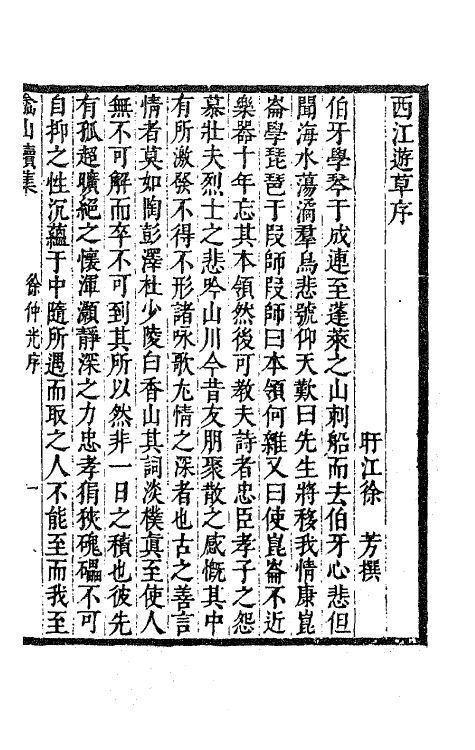 西江遊草序
盱江徐　芳撰
伯牙學琴于成連至蓬萊之山刺船而去伯牙心悲但
聞海水蕩潏羣鳥悲號仰天歎曰先生將移我情康崑
崙學琵琶于段師段師曰本領何雜又曰使崑崙不近
樂器十年忘其本領然後可教夫詩者忠臣孝子之怨
慕壯夫烈士之悲吟山川今昔友朋聚散之感慨其中
有所激發不得不形諸咏歌尢情之深者也古之善言
情者莫如陶彭澤杜少陵白香山其詞淡樸真至使人
無不可解而卒不可到其所以然非一日之積也彼先
有孤超曠絕之懷渾灝靜深之力忠孝狷狹磈礧不可
自抑之性沉蘊于中隨所遇而取之人不能至而我至
畣山續集
徐仲光序
一